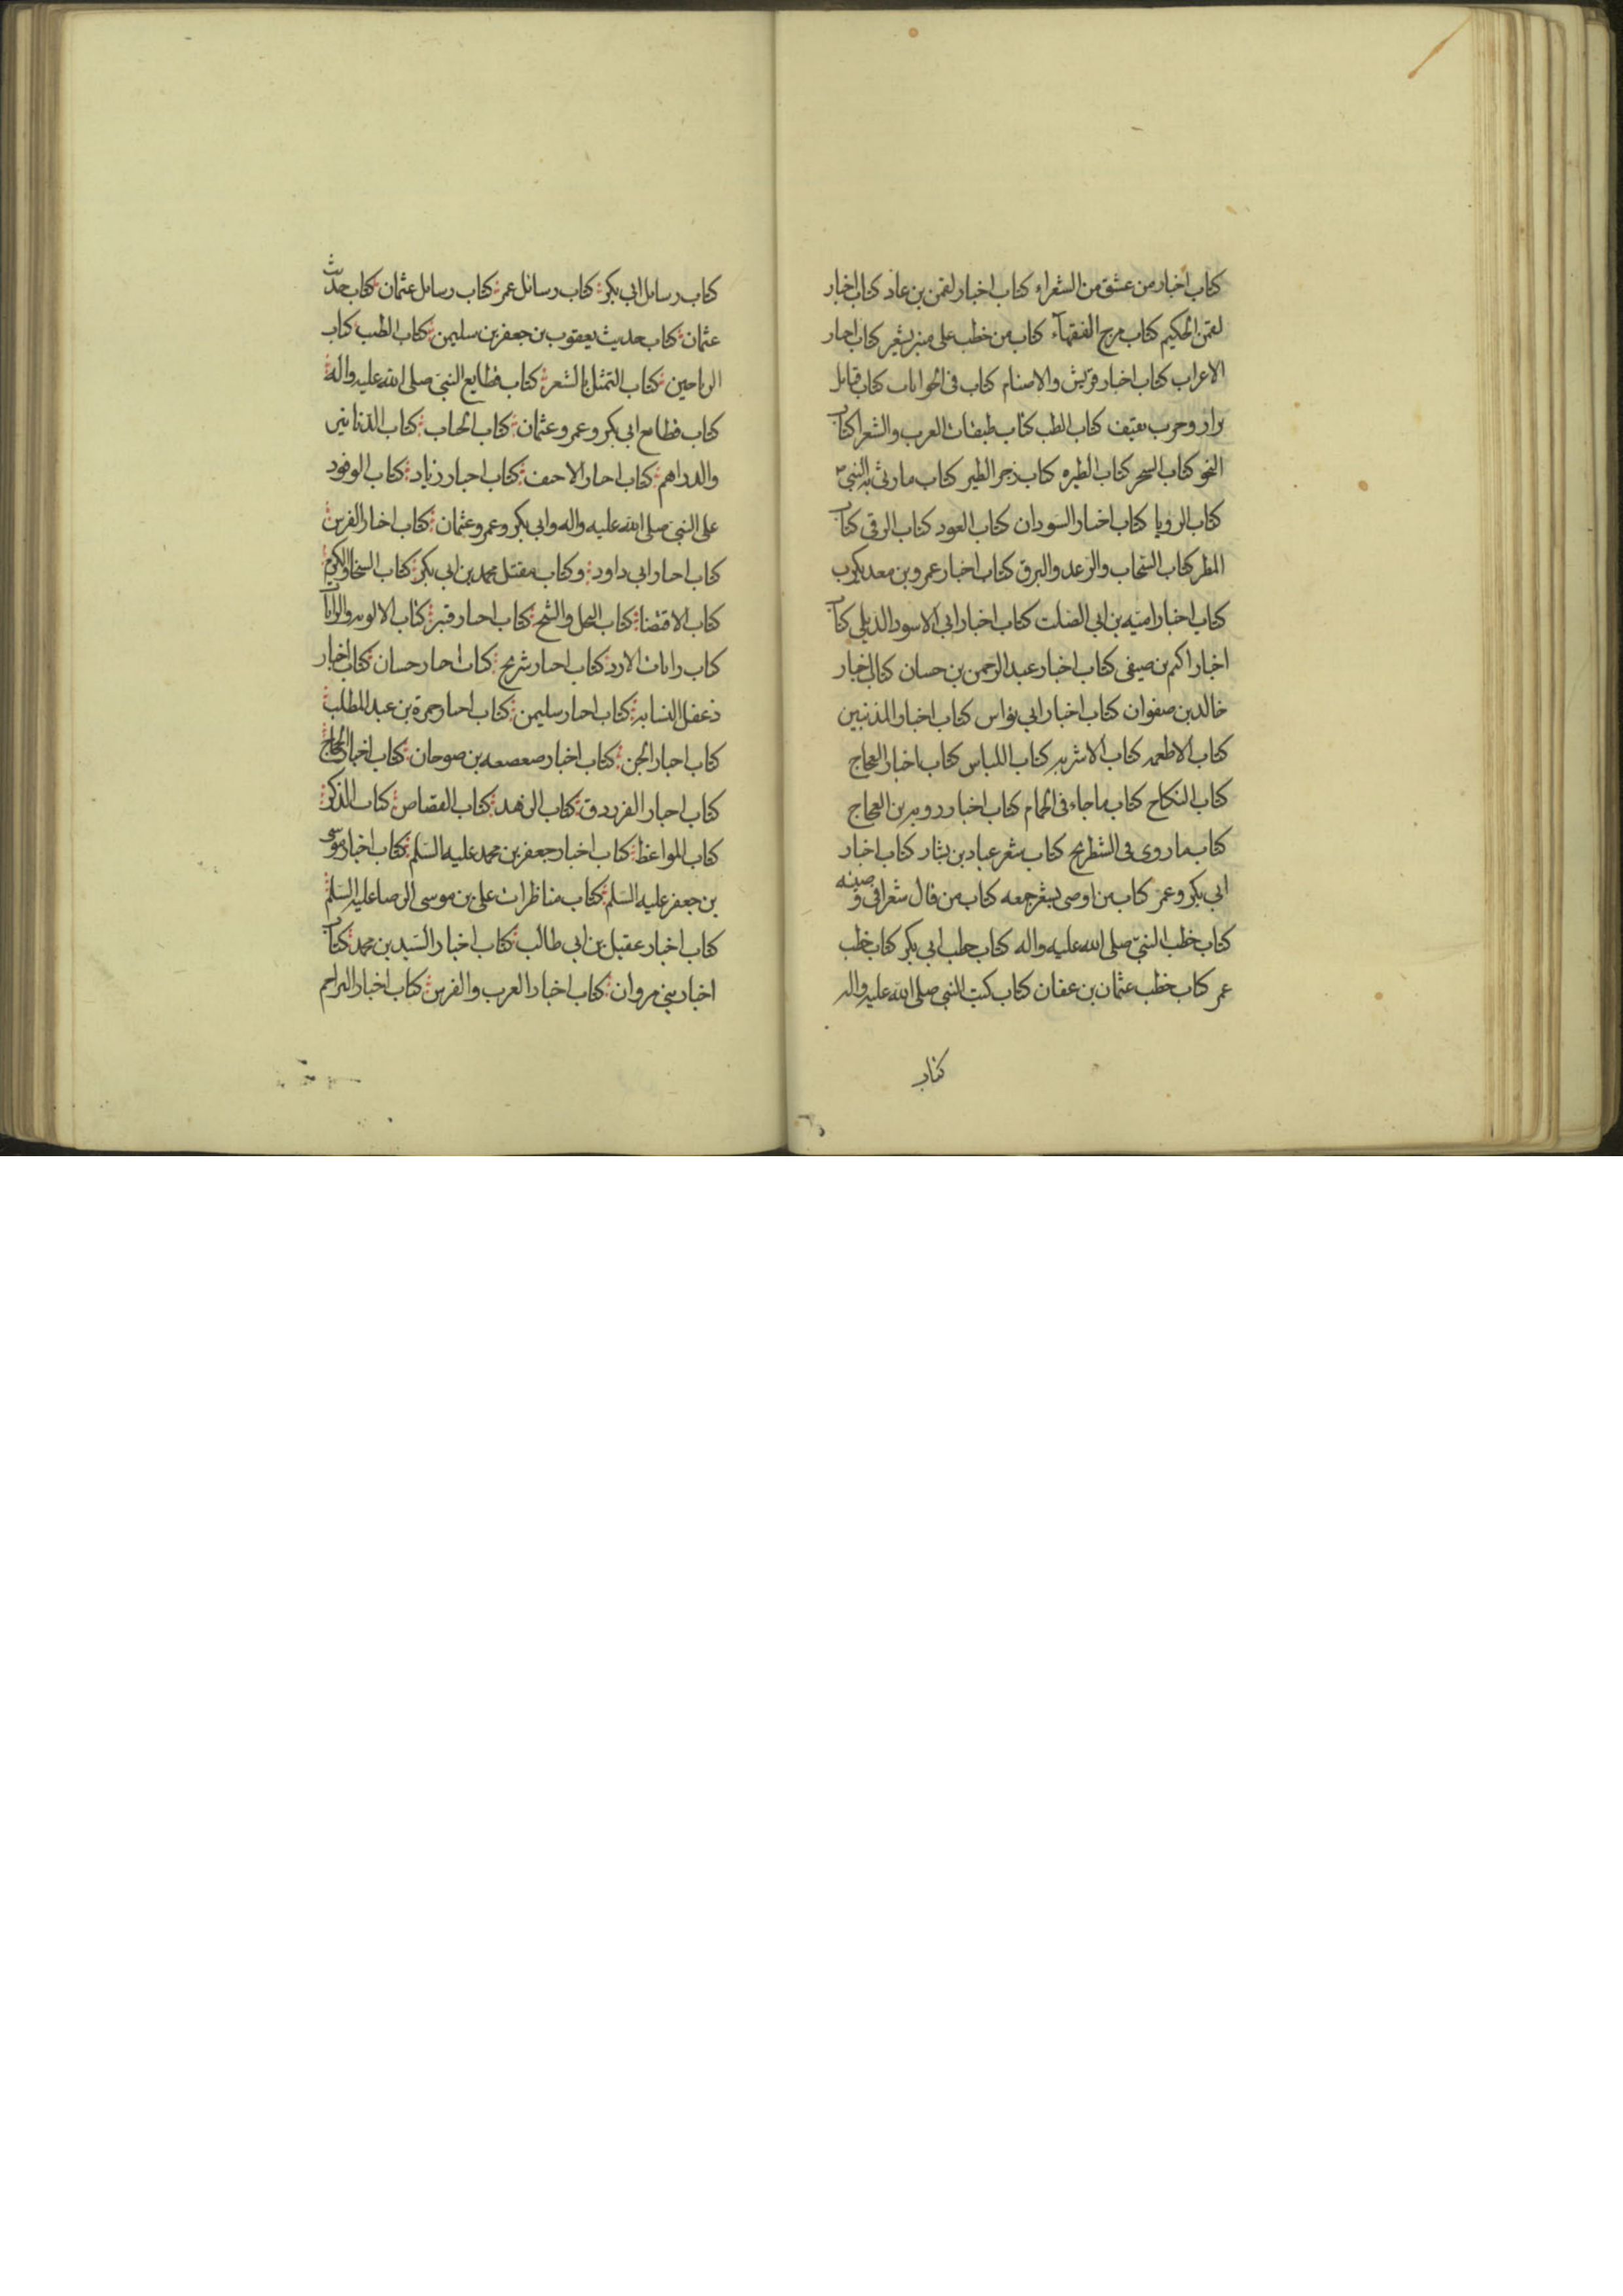 كتاب اخبار من عشق من الشعراء كتاب اخبار لقمن بن عاد كتاب اخبار
لقمن الحكيم كتاب مرج الفقهآء كتاب من خطب على منبر بشعر كتاب اخبار
الاعراب كتاب اخبار قريش والاصنام كتاب فى الجوابات كتاب قبايل
نزار وحرب ثقيف كتاب الطب كتاب طبقات العرب والشعرا كتاب
النحو كتاب السحر كتاب الطيره كتاب زجر الطير كتاب ما رثى به النبى
كتاب الرويا كتاب اخبار السودان كتاب العود كتاب الرقى كتاب
المطر كتاب السحاب والرعد والبرق كتاب اخبار عمرو بن معديكرب
كتاب اخبار اميه بن ابى الصلت كتاب اخبار ابى الاسود الديلى كتاب
اخبار اكثم بن صيفى كتاب اخبار عبد الرحمن بن حسان كتاب اخبار
خالد بن صفوان كتاب اخبار ابى نواس كتاب اخبار المذنبين
كتاب الاطعمه كتاب الاشربه كتاب اللباس كتاب اخبار العجاج
كتاب النكاح كتاب ما جاء فى الحمام كتاب اخبار روبه بن العجاج
كتاب ما روى فى الشطرنج كتاب شعر عباد بن بشار كتاب اخبار
ابى بكر وعمر كتاب من اوصى بشعر جمعه كتاب من قال شعرا فى وصيته
كتاب خطب النبى صلى الله عليه واله كتاب خطب ابى بكر كتاب خطب
عمر كتاب خطب عثمان بن عفان كتاب كتب النبى صلى الله عليه واله
كتاب
كتاب رسايل ابى بكر كتاب رسائل عمر كتاب رسايل عثمان كتاب حديث
عثمان كتاب حديث يعقوب بن جعفر بن سليمن كتاب الطب كتاب
الرياحين كتاب التمثل بالشعر كتاب قطايع النبى صلى الله عليه واله
كتاب قطايع ابى بكر وعمر وعثمان كتاب كتاب الدنانير
والدراهم كتاب اخبار الاحنف كتاب اخبار زياد كتاب الوفود
على النبى صلى الله عليه واله وابى بكر وعمر وعثمان كتاب اخبار الفرس
كتاب اخبار ابى داود وكتاب مقتل محمد بن ابى بكر كتاب السخا والكرم
كتاب الاقتضا كتاب البخل والشح كتاب اخبار قنبر كتاب الالويه والرايات
كتاب رايات الازد كتاب اخبار شريح كتاب اخبار حسان كتاب اخبار
دغفل النسابه كتاب اخبار سليمن كتاب اخبار حمزة بن عبد المطلب
كتاب اخبار الجن كتاب اخبار صعصعه بن صوحان كتاب اخبار الحجاج
كتاب اخبار الفرزدق كتاب الزهد كتاب القصاص كتاب الذكر
كتاب المواعظ كتاب اخبار جعفر بن محمد عليه السلم كتاب اخبار موسى
بن جعفر عليه السلم كتاب مناظرات على بن موسى الرضا عليه السلم
كتاب اخبار عقيل بن ابى طالب كتاب اخبار السيد بن محمد كتاب
اخبار بنى مروان كتاب اخبار العرب والفرس كتاب اخبار